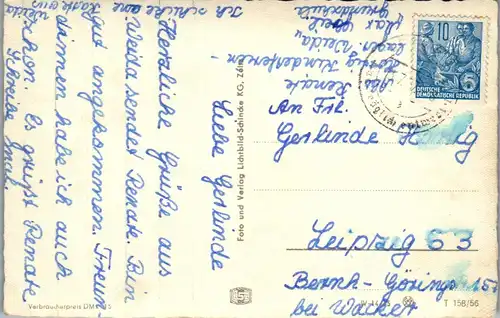 Liebe Gerlinde
Herzliche Grüße aus
Weida sendet Renate. Bin
gut angekommen. Freun
dinnen habe ich auch
schon. Es grüßt Renate
Schreibe mal.
Ich schicke eine
Karte aus
Weida
Abs. Renate
Kinderferien-
lager Weida,
Grundschule
An Frl.
Gerlinde
Leipzig S 3
Bernh.-Göring 
bei Wacker
10
5
DEUTSCHE
DEMOKRATISCHE REPUBLIK
Foto und Verlag Lichtbild-Schincke KG, Zeitz
Verbraucherpreis DM
T 158/56